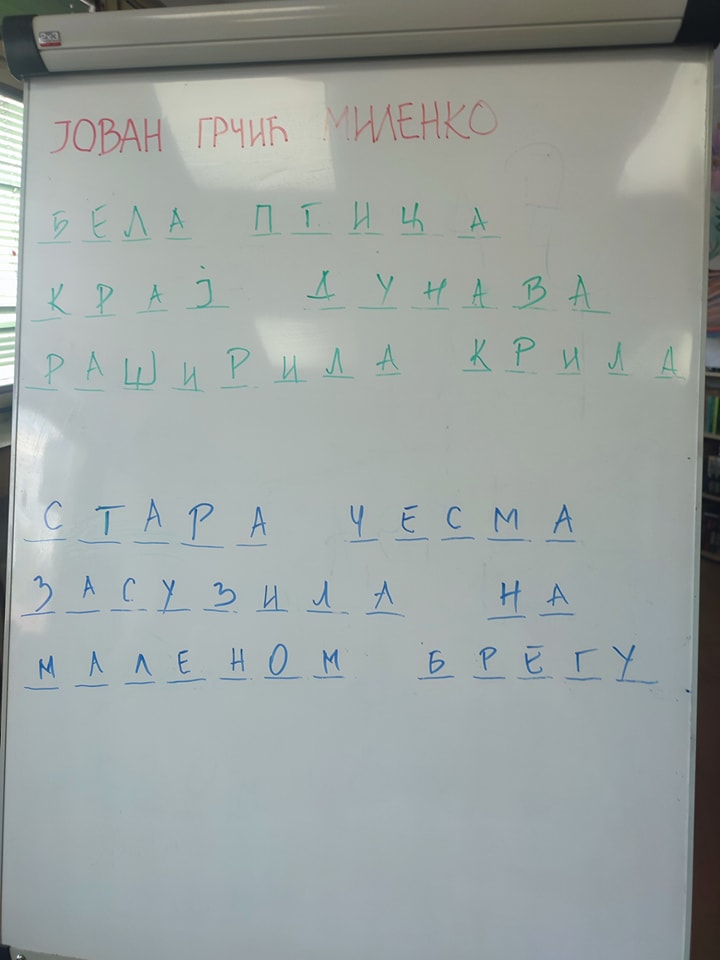 ЈОВАН ГРЧИЋ МИЛЕНКО
БЕЛА ПТИЦА
КРАЈ ДУНАВА
РАШИРИЛА КРИЛА
СТАРА ЧЕСМА
ЗАСУЗИЛА НА
МАЛЕНОМ БРЕГУ